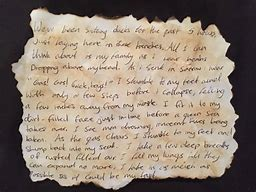 We've been sitting ducks for the past 5 hours,
Just laying here in these trenches. All I can
think about is my family as I hear again
Dropping above my head. It's
"Gas! Gas! Quick, boys!" I stumble to my feet and
With only a few steps before I collapse, feeling
a few inches away from my mask. I fit it to my
dirt filled face just in time before a green sea
takes over. I see men drowning, innocent lives being
taken. As the gas clears I stumble to my feet and
slump back into my seat. I take a few deep breaths
of rusted filled air. I fill my lungs till they
Can expand no more. I take in as much air
Possible as it could be my last.